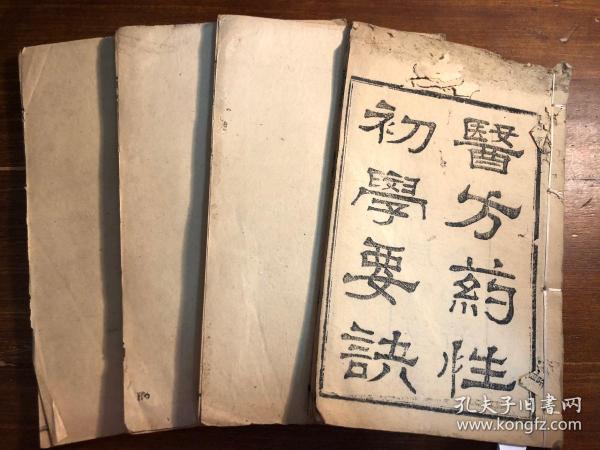 醫方葯性
初學要訣
孔夫子旧書网
www.kongfz.com